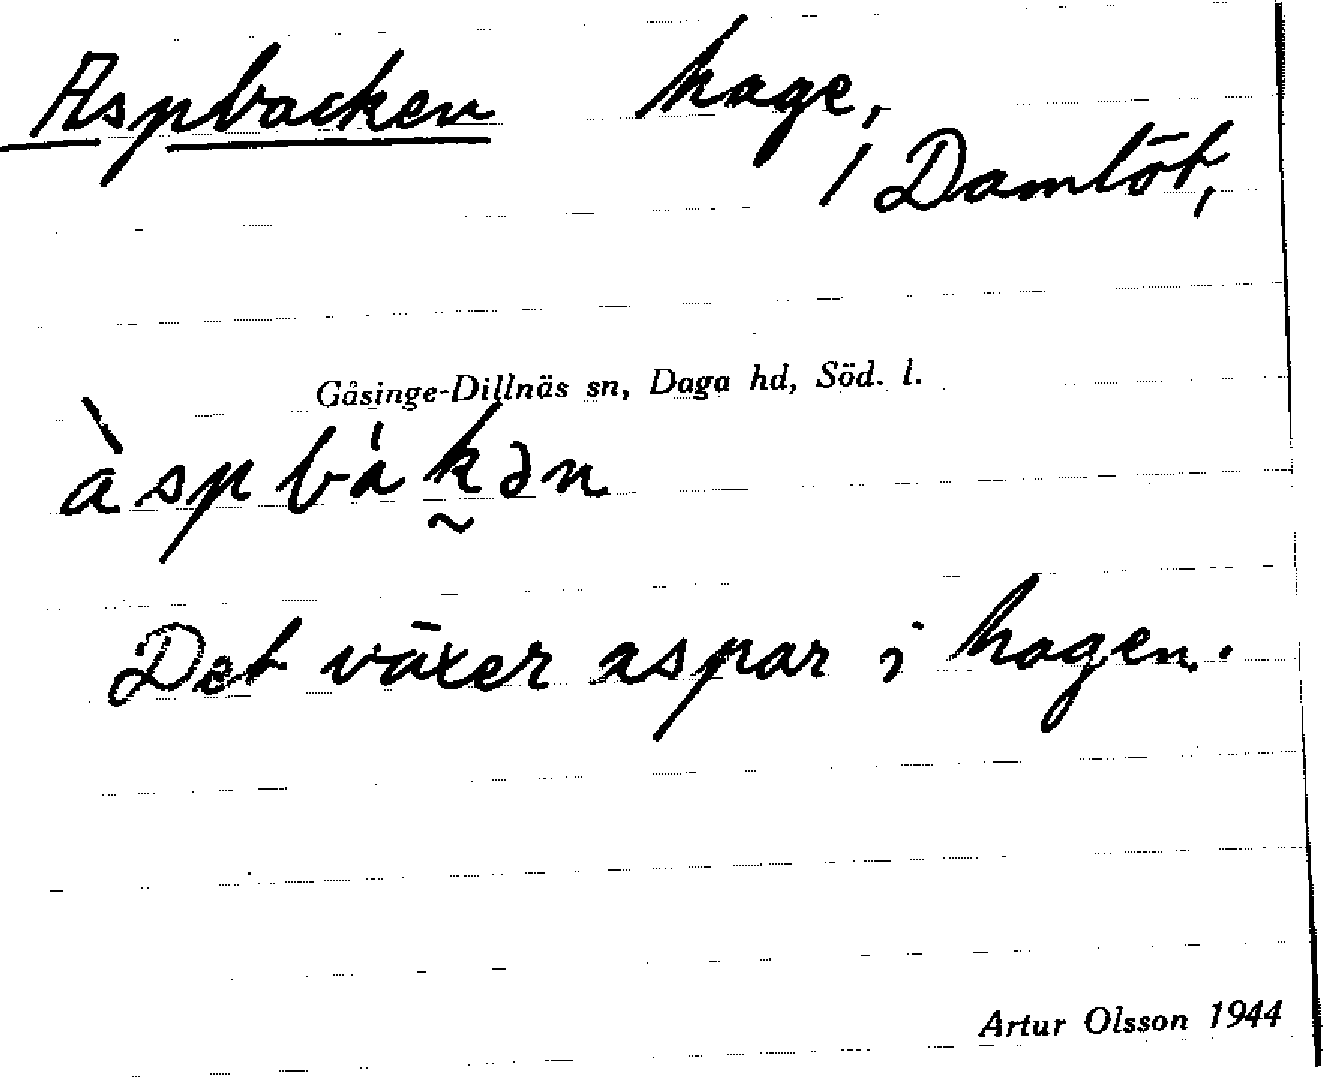 Aspbacken hage,
/ Damtöt,
Gåsinge-Dillnäs sn, Daga hd, Söd. l.
àspbákən
Det växer aspar i hagen.
Artur Olsson 1944